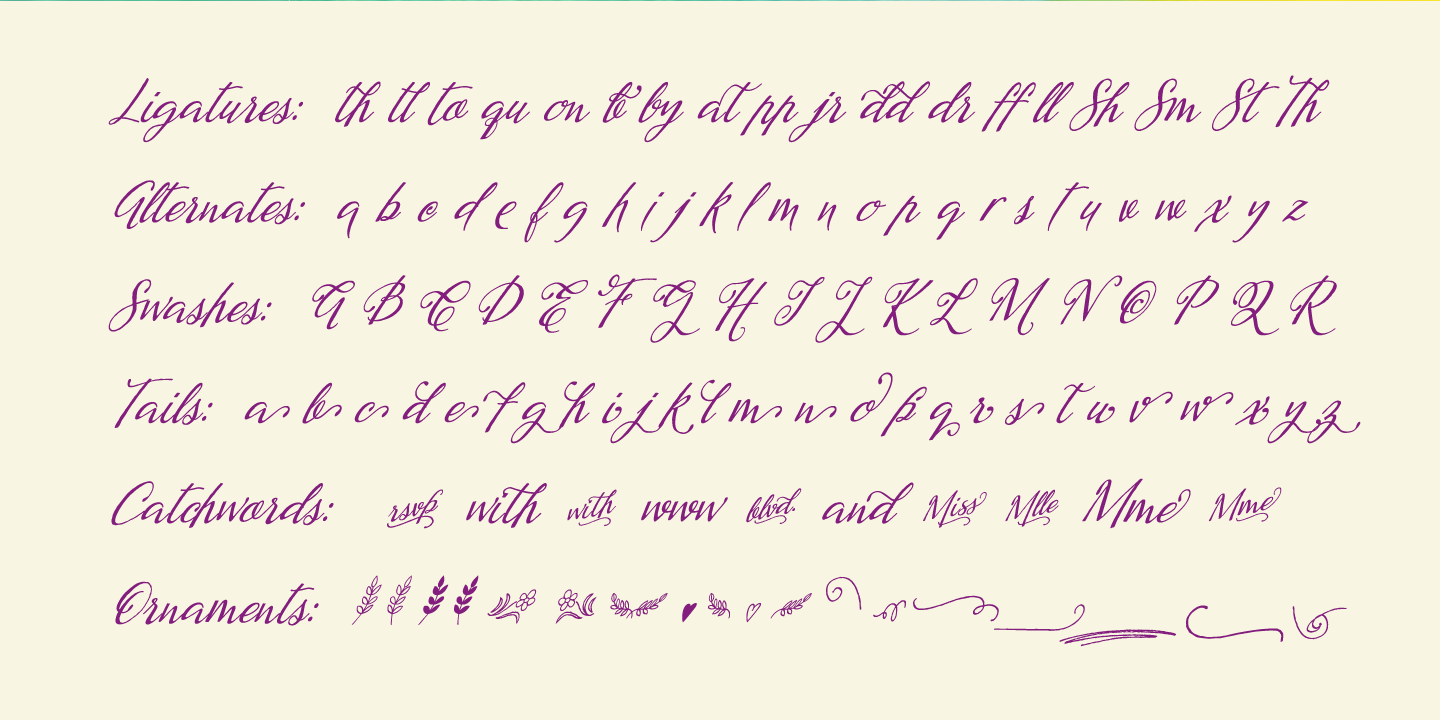 Ligatures: th tt to qu on b by at pp jr dd dr ff ll Sh Sm St Th
Alternates: a b c d e f g h i j k l m n o p q r s t u v w x y z
Swashes: A B C D E F G H I J K L M N O P Q R
Tails: a b c d e f g h i j k l m n o p q r s t u v w x y z
Catchwords: rsvp with with www blvd. and Miss Mlle Mme Mme
Ornaments: